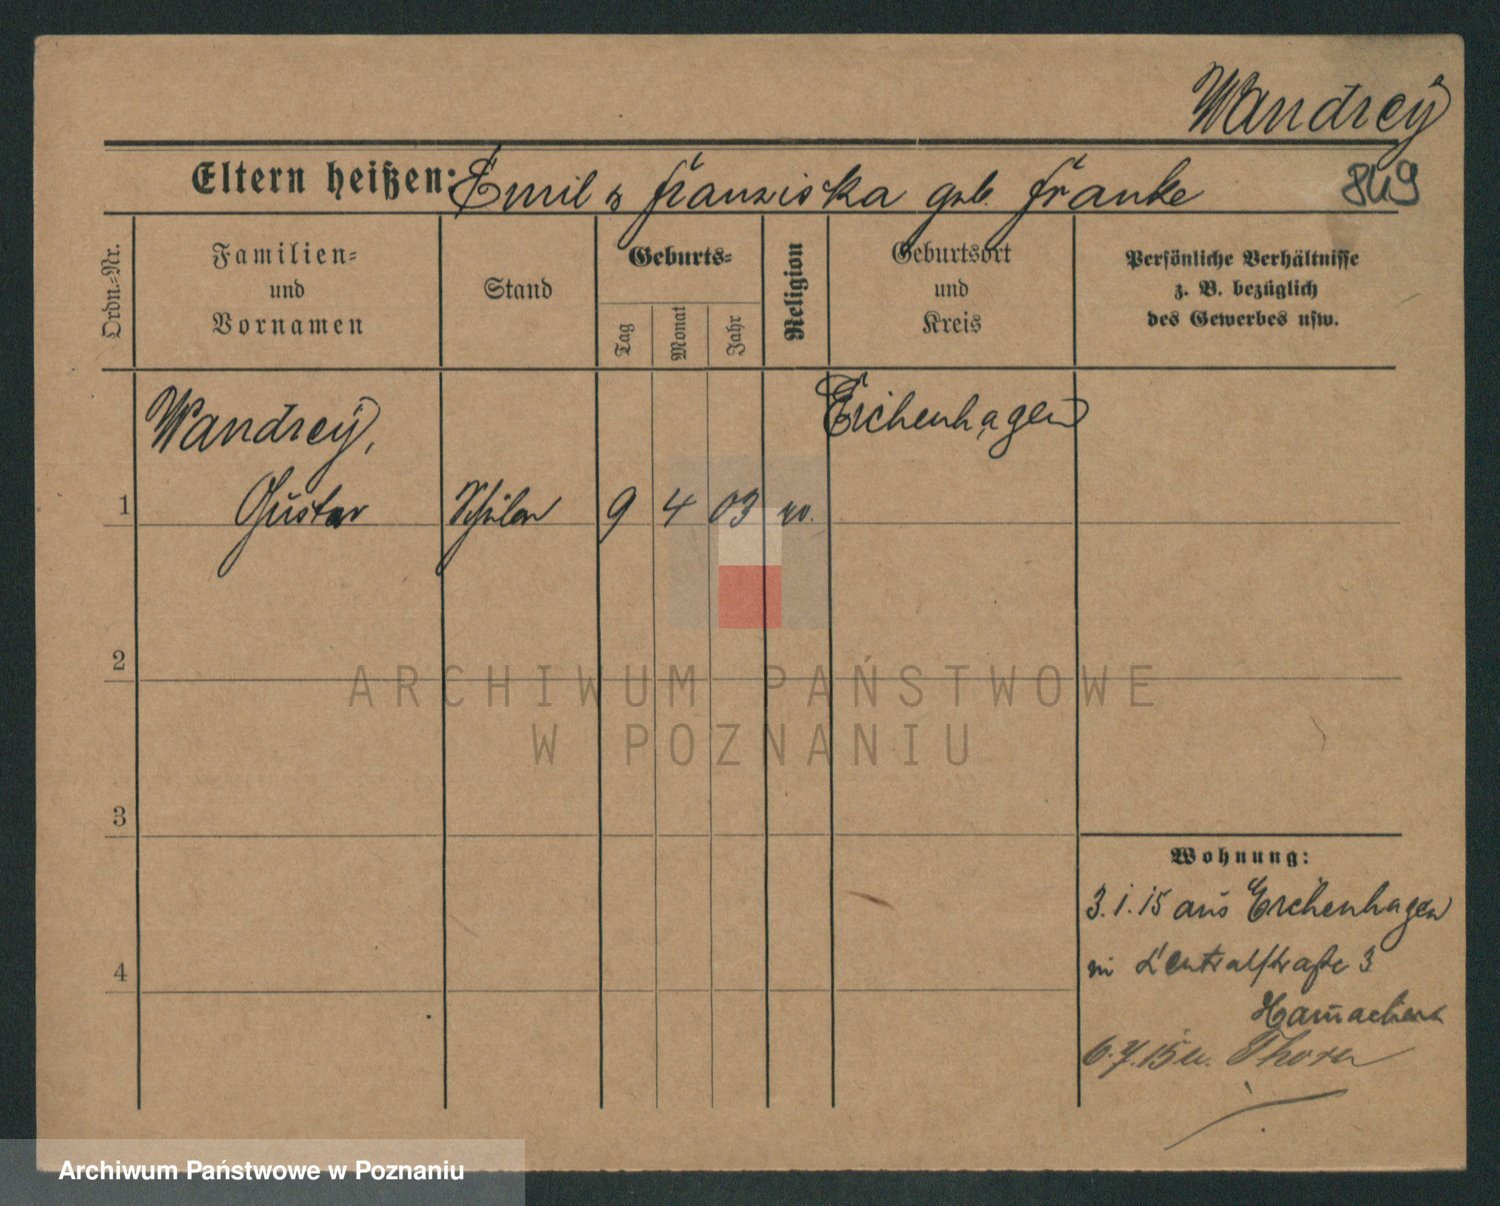 Wandreÿ
Eltern heißen: Emil & Franziska geb. Franke
849
Ordn.-Nr.
Familien-
und
Vornamen
Stand
Geburts-
Tag
Monat
Jahr
Religion
Geburtsort
und
Kreis
Persönliche Verhältnisse
z. B. bezüglich
des Gewerbes usw.
Wandreÿ,
Eichenhagen
1 Gustav Schüler 9 4 03 ev.
2
ARCHIWUM PAŃSTWOWE
W POZNANIU
3
Wohnung:
3.1.15 aus Eichenhagen
4
in Zentralstraße 3
6.7.15 n. Thorn
Archiwum Państwowe w Poznaniu